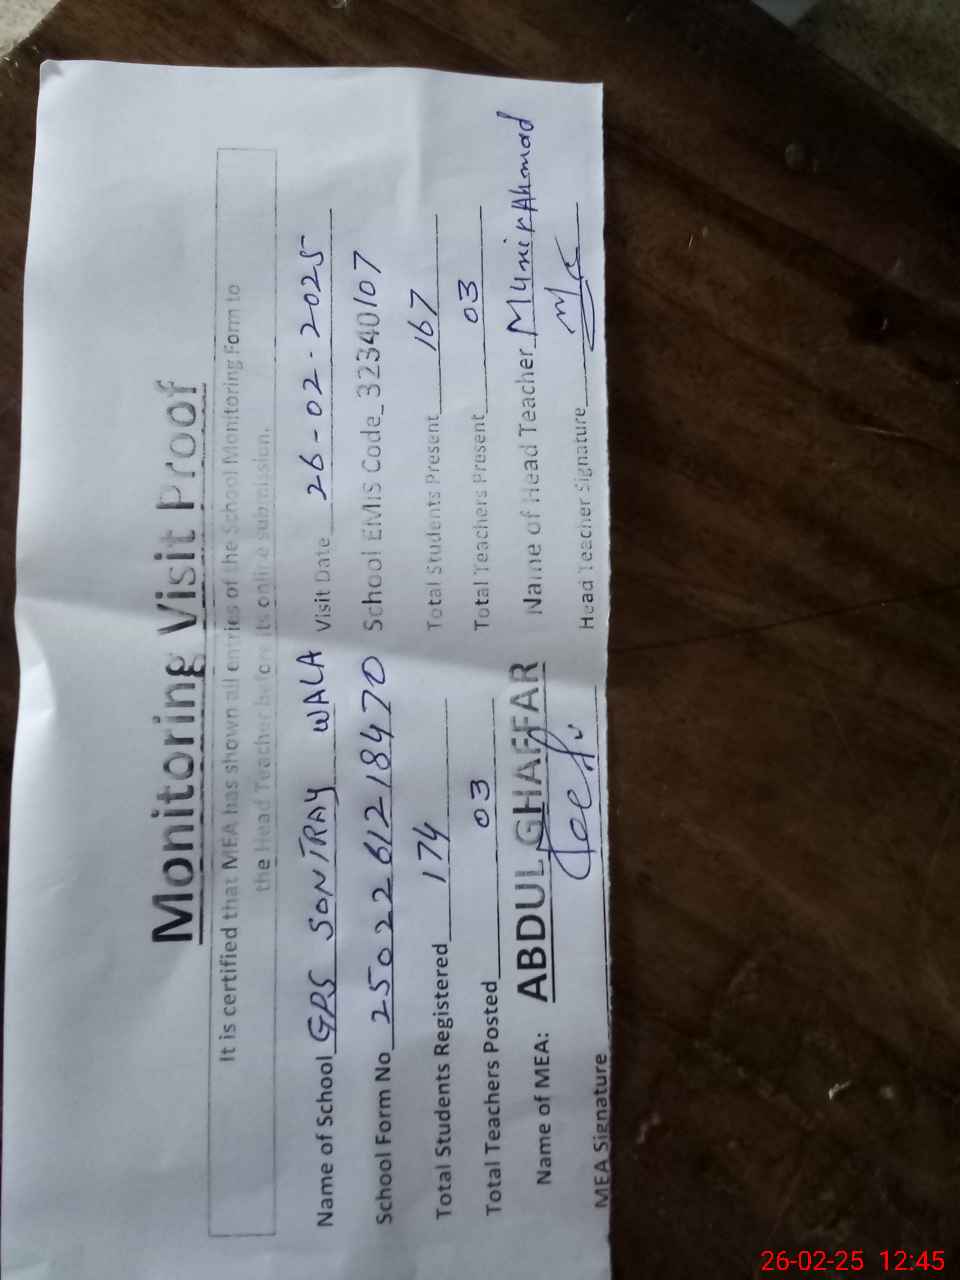 Monitoring Visit Proof
It is certified that MEA has shown all entries of the School Monitoring Form to
the Head Teacher before its online submission.
Name of School GPS SONTRAY WALA Visit Date 26-02-2025
School Form No 2502261218470 School EMIS Code 32340107
Total Students Registered 174 Total Students Present 167
Total Teachers Posted 03 Total Teachers Present 03
Name of MEA: ABDUL GHAFFAR Name of Head Teacher Munir Ahmad
MEA Signature Head Teacher Signature
26-02-25 12:45